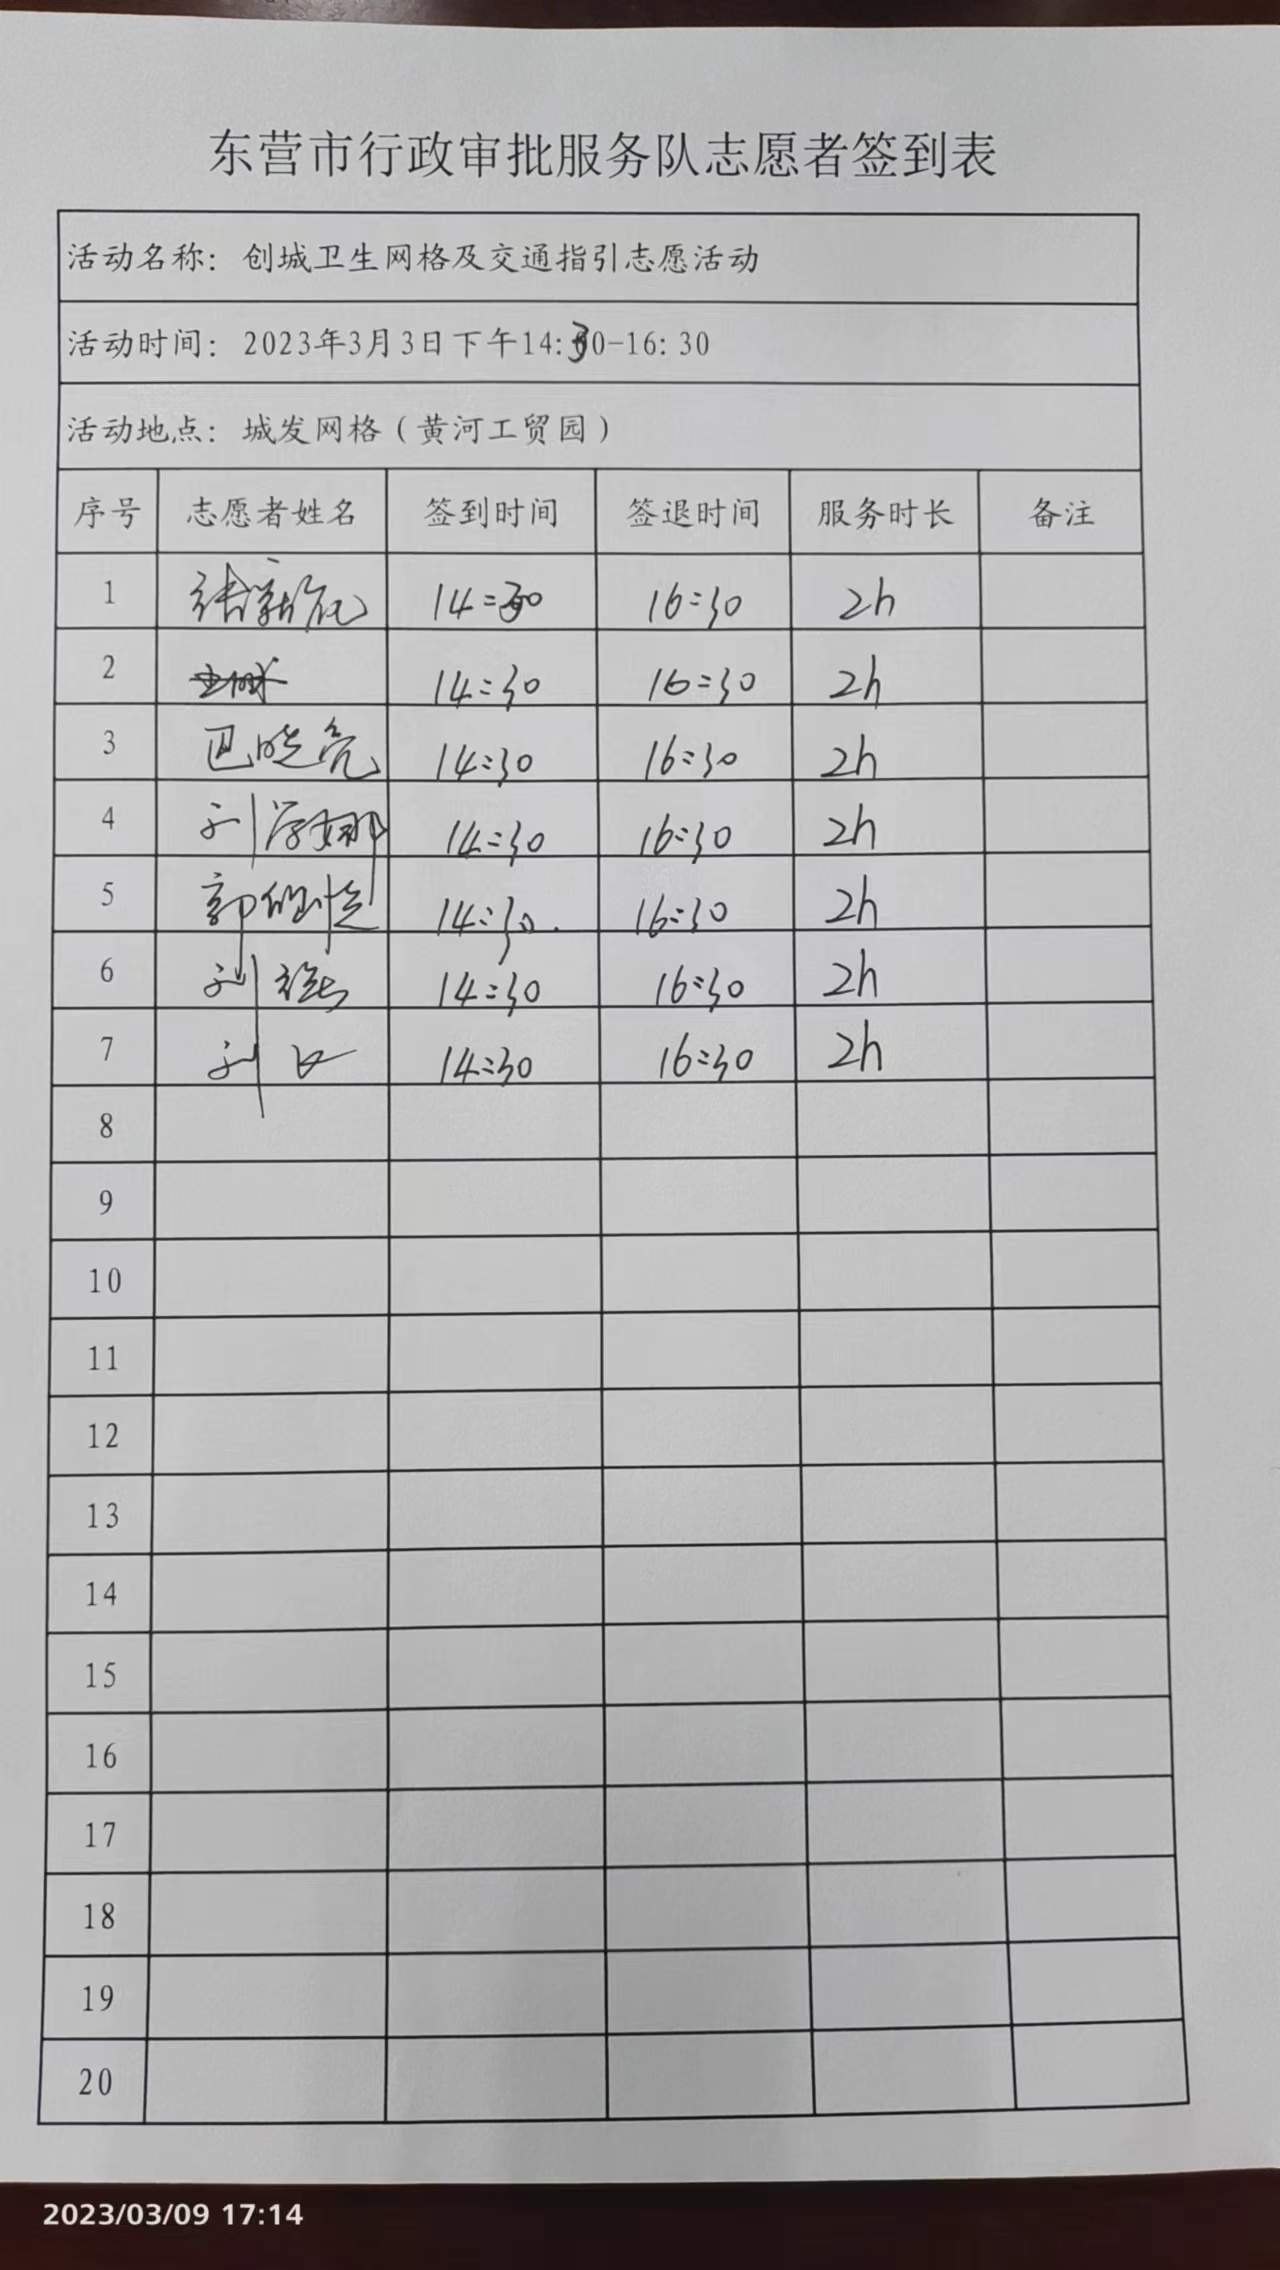 东营市行政审批服务队志愿者签到表
活动名称：创城卫生网格及交通指引志愿活动
活动时间：2023年3月3日下午14:30-16:30
活动地点：城发网格（黄河工贸园）
序号 志愿者姓名 签到时间 签退时间 服务时长 备注
1 14:30 16:30 2h
2 14:30 16:30 2h
3 巴晓亮 14:30 16:30 2h
4 刘学娜 14:30 16:30 2h
5 郭 14:30 16:30 2h
6 刘 14:30 16:30 2h
7 刘 14:30 16:30 2h
8
9
10
11
12
13
14
15
16
17
18
19
20
2023/03/09 17:14